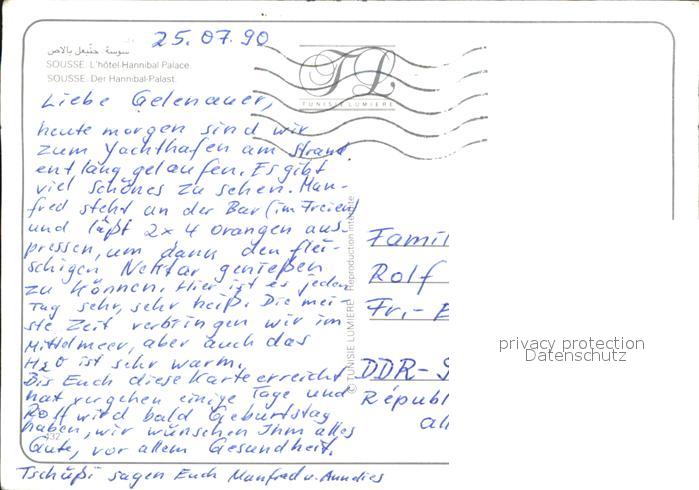 25.07.90
سوسة
SOUSSE. L'hôtel-Hannibal Palace.
SOUSSE. Der Hannibal-Palast.
TL
TUNISIE LUMIERE
Liebe Gelenauer,
heute morgen sind wir
zum Yachthafen am Strand
entlang gelaufen. Es gibt
viel schönes zu sehen. Man-
fred steht an der Bar (im Freien)
und läßt 2x4 Orangen aus-
pressen, um dann den flei-
schigen Nektar genießen
zu können. Hier ist es jeden
Tag sehr, sehr heiß. Die mei-
ste Zeit verbringen wir im
Mittelmeer, aber auch das
H2O ist sehr warm.
Bis Euch diese Karte erreicht
hat vergehen einige Tage und
Rolf wird bald Geburtstag
haben, wir wünschen Ihm alles
Gute, vor allem Gesundheit.
Tschüßi sagen Euch Manfred u. Annelies
432
© TUNISIE LUMIERE Reproduction interdite
Famil
Rolf
Fr.-
DDR-9
Républ
all
privacy protection
Datenschutz